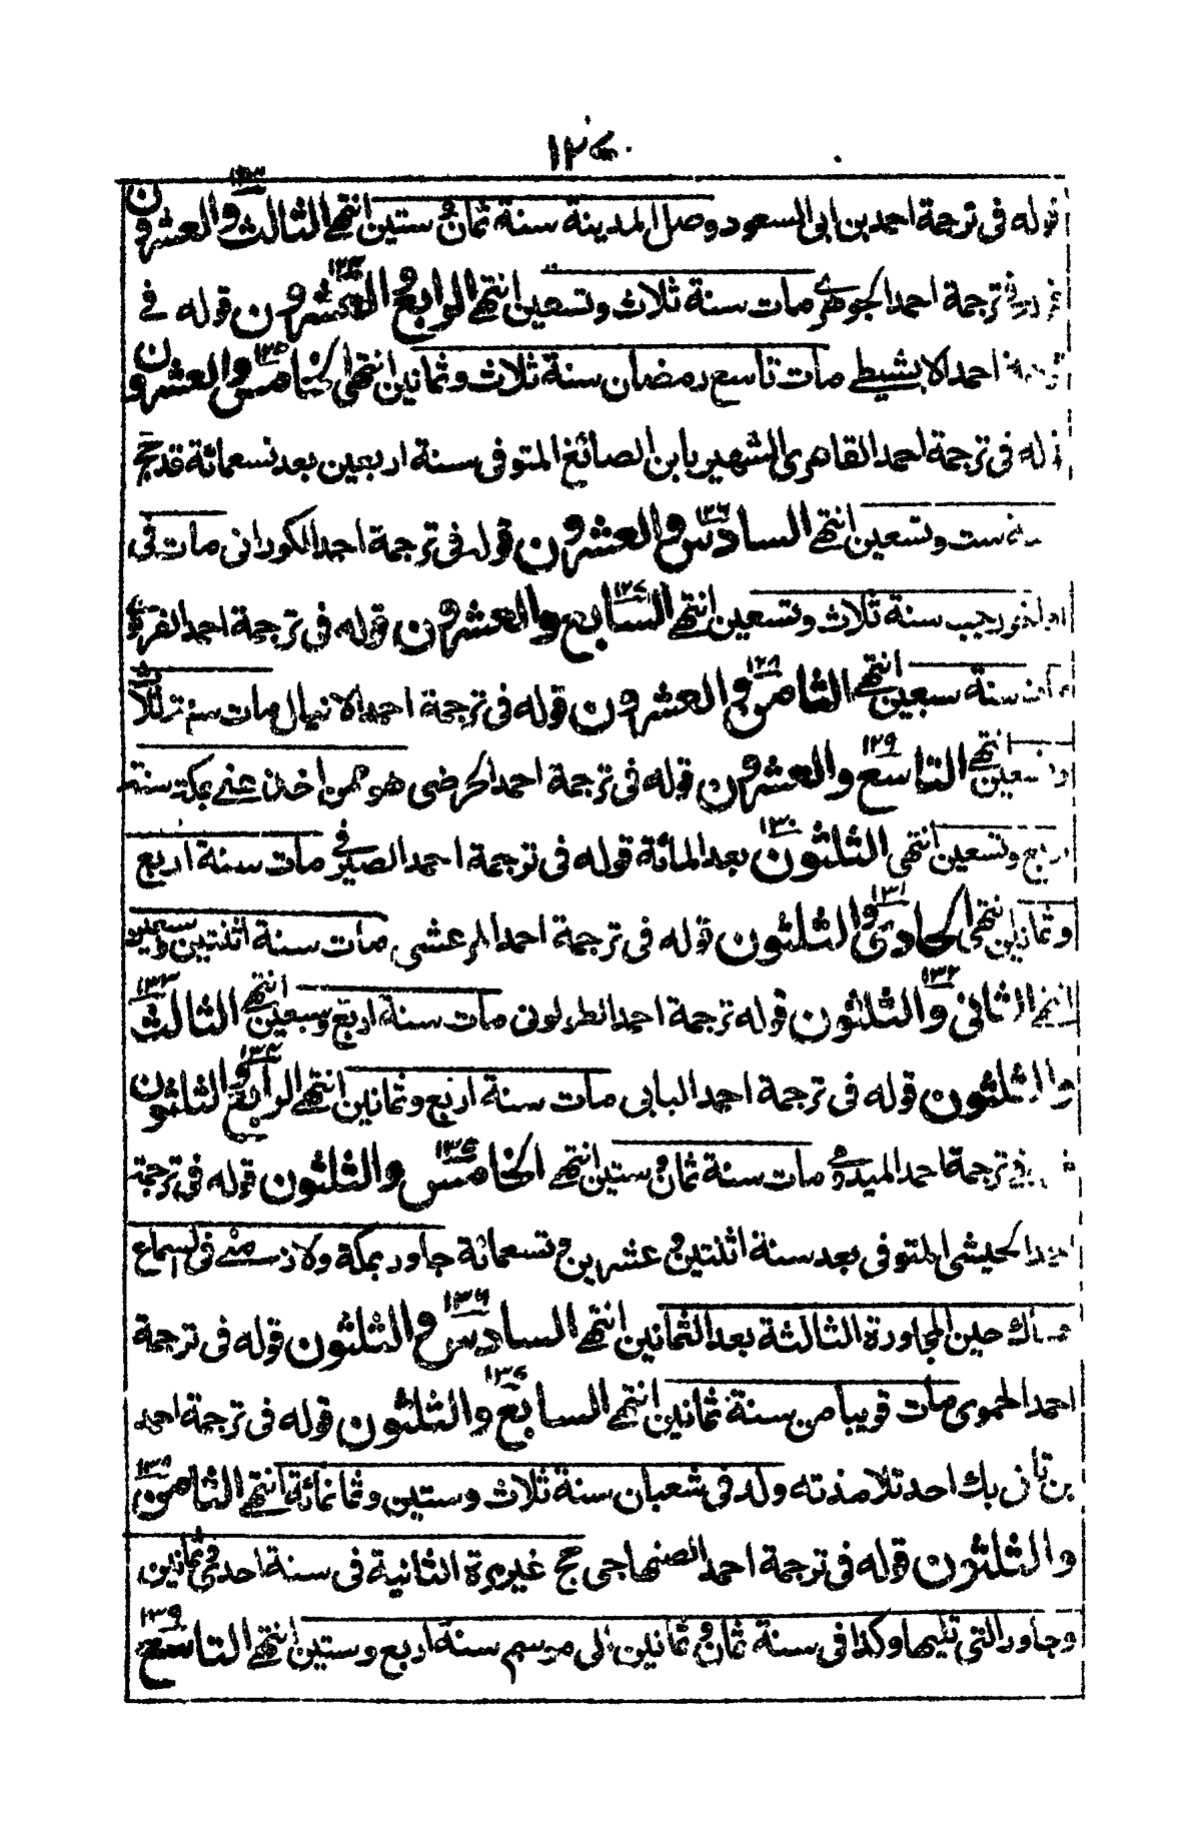 ١٢٧
قوله فى ترجمة احمد بن ابى السعود وصل المدينة سنة ثمان و ستين انتهى الثالث والعشرون ١٢٣
ترجمة احمد الجوهرى مات سنة ثلاث وتسعين انتهى الرابع والعشرون ١٢٤ قوله فى
احمد الابشيطى مات تاسع رمضان سنة ثلاث وثمانين انتهى الخامس والعشرون ١٢٥
له فى ترجمة احمد القاهرى الشهير بابن الصائغ المتوفى سنة اربعين بعد تسعمائة قد حج
ست وتسعين انتهى السادس والعشرون ١٢٦ قوله فى ترجمة احمد الكورانى مات فى
رجب سنة ثلاث وتسعين انتهى السابع والعشرون ١٢٧ قوله فى ترجمة احمد
سنة سبعين انتهى الثامن والعشرون ١٢٨ قوله فى ترجمة احمد مات سنة ثلاث
وتسعين انتهى التاسع والعشرون ١٢٩ قوله فى ترجمة احمد الحرضى هو ممن اخذ عنى بمكة سنة
اربع وتسعين انتهى الثلثون ١٣٠ بعد المائة قوله فى ترجمة احمد الصيرفى مات سنة اربع
وثمانين انتهى الحادى والثلثون ١٣١ قوله فى ترجمة احمد المرعشى مات سنة اثنتين وسبعين
انتهى الثانى والثلثون ١٣٢ قوله ترجمة احمد مات سنة اربع وسبعين انتهى الثالث ١٣٣
والثلثون قوله فى ترجمة احمد البابى مات سنة اربع وثمانين انتهى الرابع والثلثون ١٣٤
فى ترجمة احمد الميدومى مات سنة ثمان و ستين انتهى الخامس والثلثون ١٣٥ قوله فى ترجمة
احمد الحبيشى المتوفى بعد سنة اثنتين و عشرين و تسعمائة جاور بمكة ولازمنى فى السماع
هناك حين المجاورة الثالثة بعد الثمانين انتهى السادس والثلثون ١٣٦ قوله فى ترجمة
احمد الحموى مات قريبا من سنة ثمانين انتهى السابع والثلثون ١٣٧ قوله فى ترجمة احمد
بن تانى بك احد تلامذته ولد فى شعبان سنة ثلاث وستين وثمانمائة انتهى الثامن ١٣٨
والثلثون قوله فى ترجمة احمد الصنهاجى حج غير مرة الثانية فى سنة احدى وثمانين
وجاور التى تليها وكذا فى سنة ثمان و ثمانين الى موسم سنة اربع وستين انتهى التاسع ١٣٩